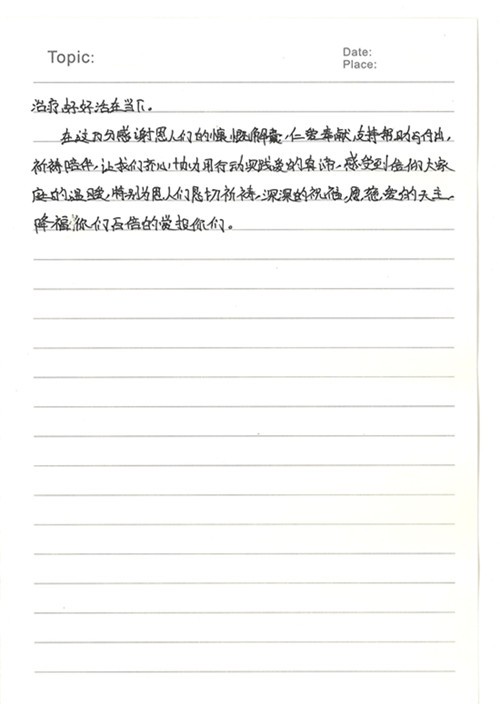 Topic:
Date:
Place:
治疗好好活在当下。
在这万分感谢恩人们的慷慨解囊,仁爱奉献,支持帮助与付出,
祈祷陪伴,让我们齐心协力用行动实践爱的真谛,感受到信仰大家
庭的温暖,特别为恩人们恳切祈祷,深深的祝福,恳祈爱的天主,
降福你们百倍的赏报你们。